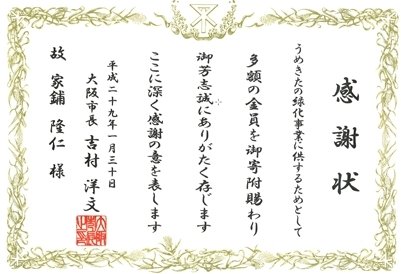 感謝状
うめきたの緑化事業に供するためとして
多額の金員を御寄附賜わり
御芳志誠にありがたく存じます
ここに深く感謝の意を表します
平成二十九年一月三十日
大阪市長 吉村洋文
故 家鋪 隆仁 様